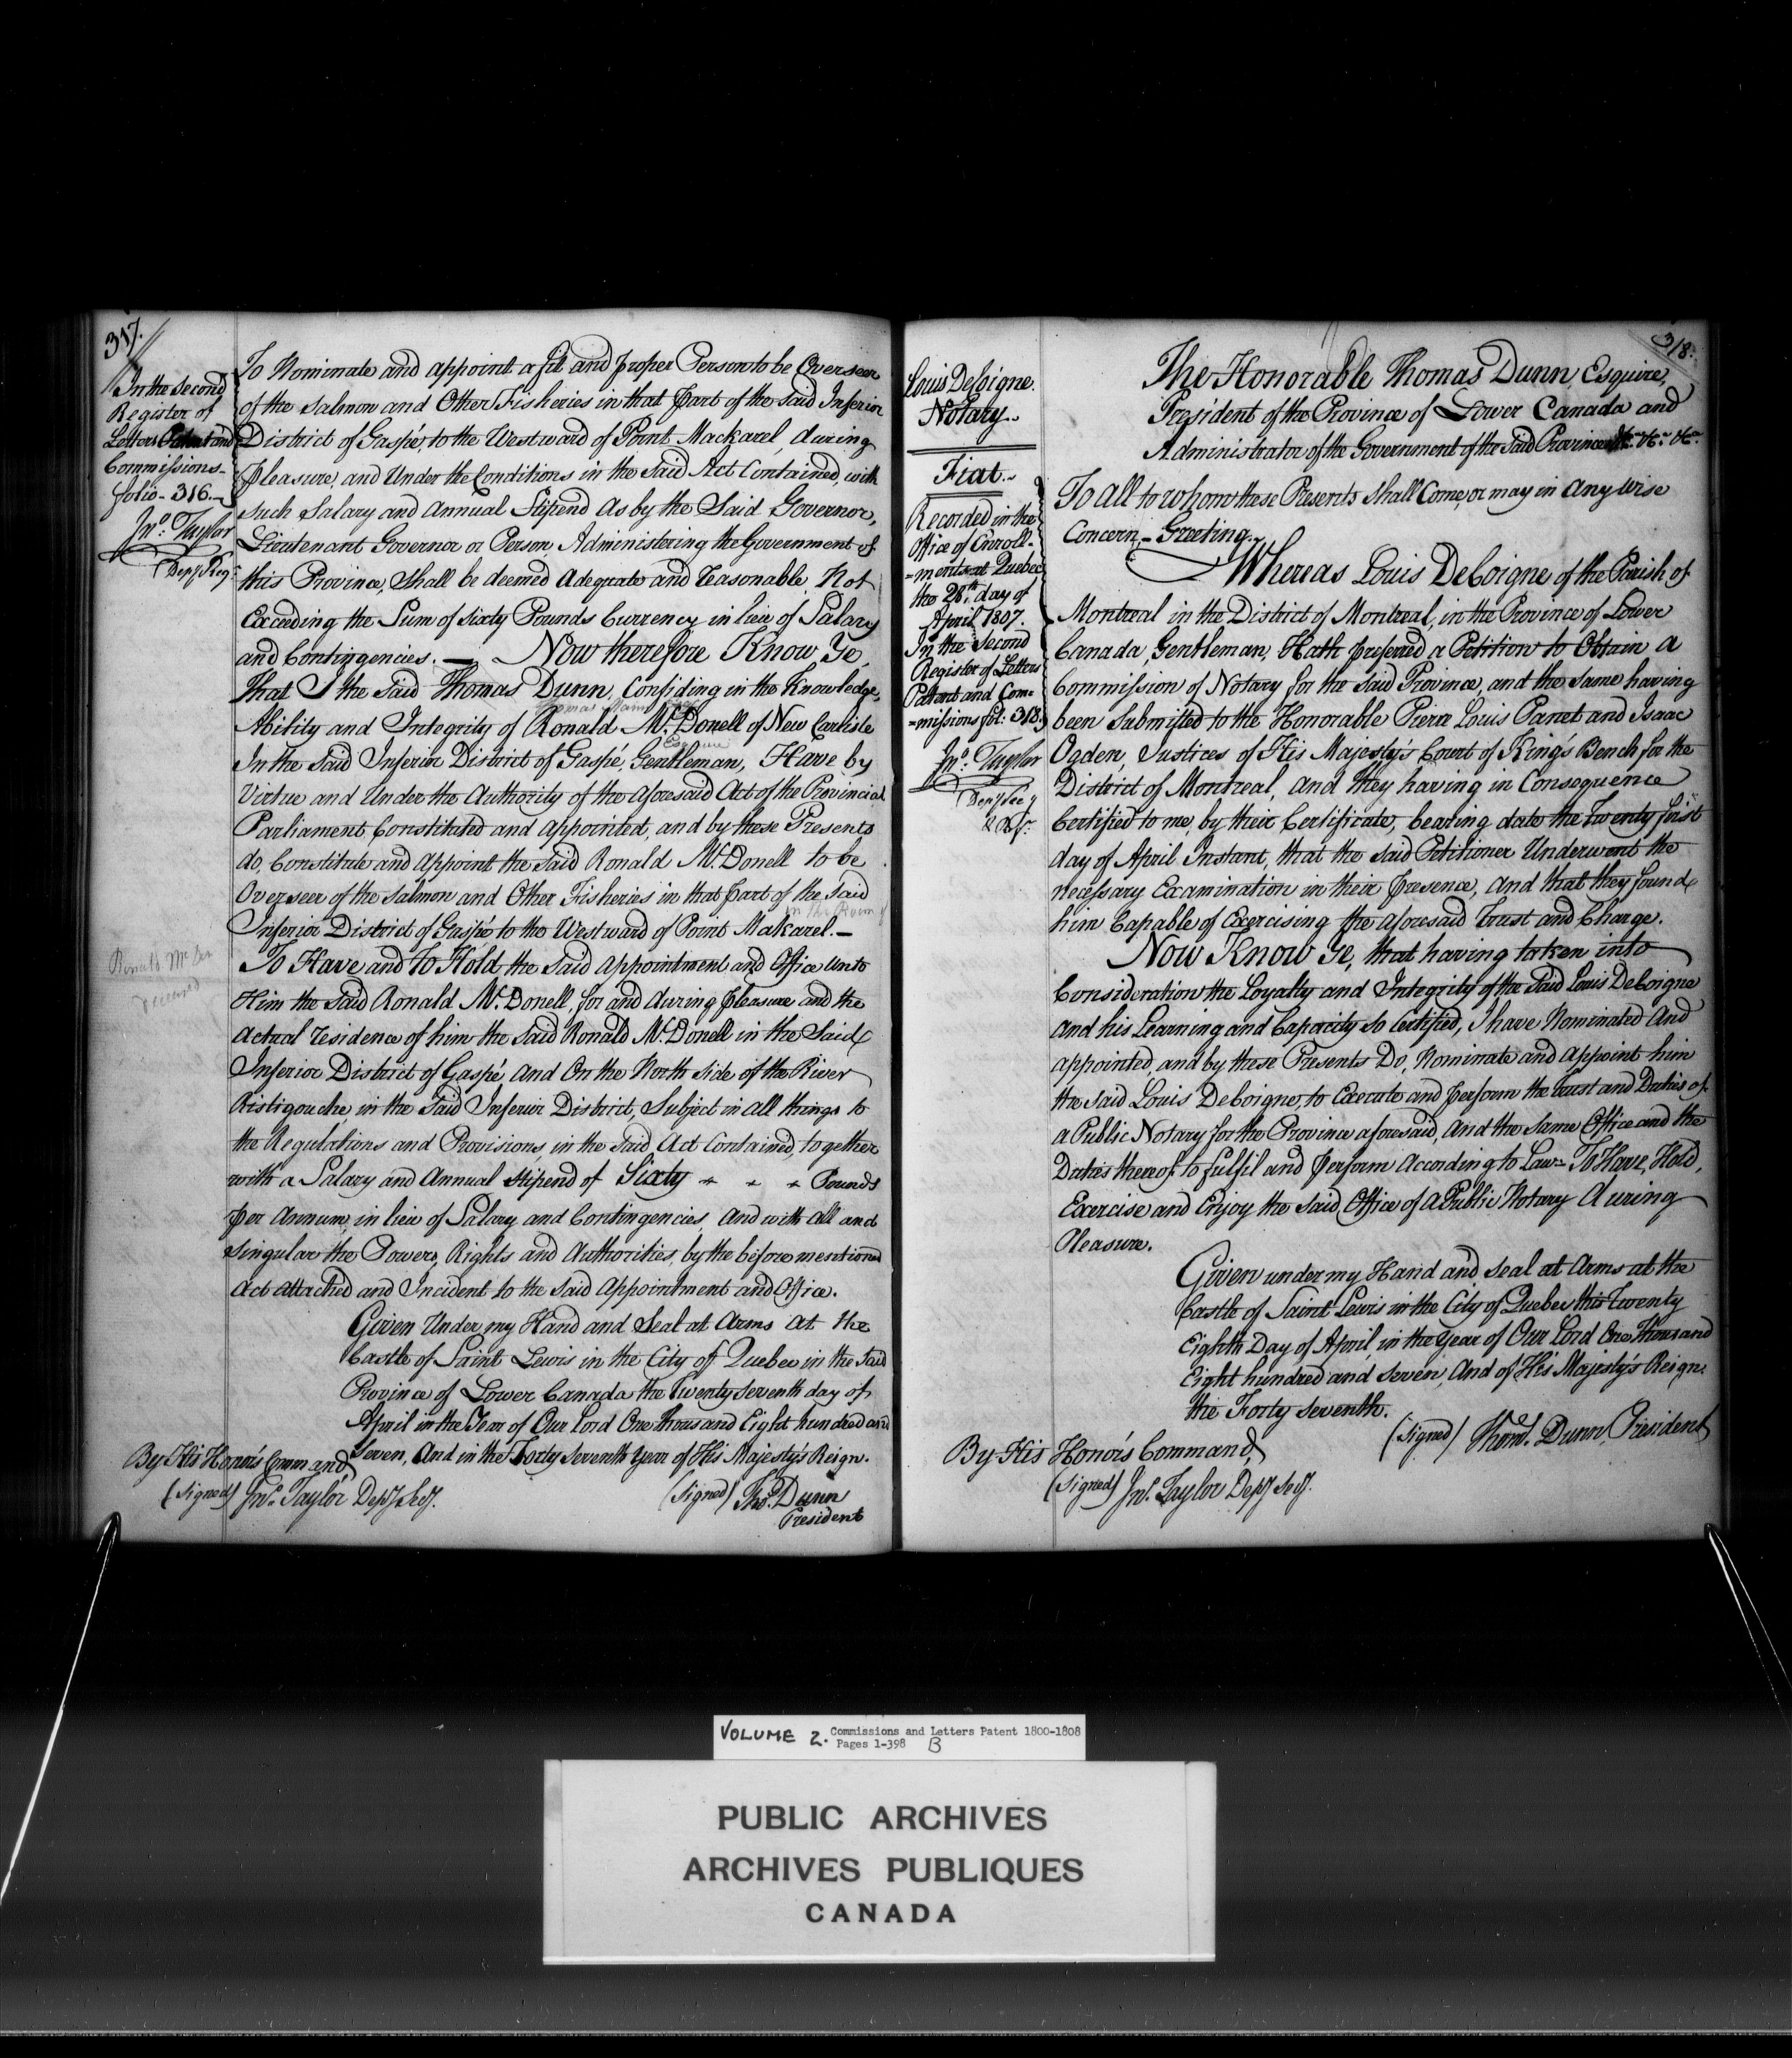 317.
In the Second
Register of
Letters Patent and
Commissions-
folio - 316.
Jno. Taylor
Depy Reg.
To Nominate and appoint a fit and proper Person to be Overseer
of the Salmon and Other Fisheries in that part of the said Inferior
District of Gaspé, to the Westward of Point Mackarel, during
pleasure, and Under the Conditions in the Said Act Contained, with
such Salary and Annual Stipend As by the Said Governor,
Lieutenant Governor or Person Administering the Government of
this Province, Shall be deemed Adequate and reasonable, Not
Exceeding the Sum of sixty Pounds Currency in lieu of Salary
and Contingencies. — Now therefore Know Ye,
that I the Said Thomas Dunn, Confiding in the Knowledge,
Thomas Mann
Ability and Integrity of Ronald Mc. Donell of New Carlisle
Esquire
In the Said Inferior District of Gaspé, Gentleman, Have by
Virtue and Under the Authority of the Aforesaid Act of the Provincial
Parliament Constituted and appointed, and by these Presents
do, Constitute and appoint the Said Ronald Mc. Donell to be
Overseer of the Salmon and Other Fisheries in that part of the Said
in the Room of
Inferior District of Gaspé to the Westward of Point Makarel. —
Ronald Mc Don
deceased
To Have and To Hold the Said appointment and Office Unto
Him the Said Ronald Mc. Donell, for and during pleasure and the
Actual residence of him the Said Ronald Mc. Donell in the Said
Inferior District of Gaspé, And On the North side of the River
Ristigouche, in the Said Inferior District, Subject in all things to
the Regulations and Provisions, in the Said Act Contained, together
with a Salary and Annual Stipend of Sixty " " " Pounds
per Annum, in lieu of Salary and Contingencies, And with All and
singular the Powers, Rights and Authorities, by the before mentioned
Act attached and Incident to the Said Appointment and Office.
Given Under my Hand and Seal at Arms At the
Castle of Saint Lewis in the City of Quebec in the Said
Province of Lower Canada the Twenty Seventh day of
April in the Year of Our Lord One thousand Eight hundred and
Seven, And in the Forty Seventh Year of His Majesty's Reign.
By His Honor's Command
(Signed) Jno. Taylor Depy Secy.
(Signed) Thos. Dunn
President
318.
Louis DeLoigne.
Notary..
Fiat..
Recorded in the
Office of Enroll-
=ments at Quebec
the 28th. day of
April 1807.
In the Second
Register of Letters
Patent and Com=
=missions fol: 318.
Jno. Taylor
Depy Secy
& Rr.
The Honorable Thomas Dunn, Esquire,
President of the Province of Lower Canada and
Administrator of the Government of the Said Province &c. &c. &c.
To all to whom these Presents shall Come, or may in Any wise
Concern, - Greeting.
Whereas Louis DeLoigne of the Parish of
Montreal in the District of Montreal, in the Province of Lower
Canada, Gentleman, Hath preferred a Petition to Obtain a
Commission of Notary for the said Province, and the same having
been Submitted to the Honorable Pierre Louis Panet and Isaac
Ogden, Justices of His Majesty's Court of King's Bench for the
District of Montreal, And they having in Consequence
Certified to me, by their Certificate, bearing date the Twenty first
day of April Instant, that the said Petitioner Underwent the
necessary Examination in their presence, And that they found
him Capable of Exercising the Aforesaid Trust and Charge.
Now Know Ye, that having taken into
Consideration the Loyalty and Integrity of the Said Louis DeLoigne
And his Learning and Capacity so Certified, I have Nominated And
appointed, and by these Presents Do, Nominate and Appoint him
the said Louis DeLoigne, to Execute and perform the trust and Duties of
a Public Notary for the Province aforesaid, And the Same Office and the
Duties thereof to fulfil and perform According to Law - To Have, Hold,
Exercise and Enjoy the said Office of a Public Notary during
Pleasure.
Given under my Hand and Seal at Arms at the
Castle of Saint Lewis in the City of Quebec this Twenty
Eighth Day of April, in the Year of Our Lord One Thousand
Eight hundred and Seven, And of His Majesty's Reign
the Forty Seventh.
(Signed) Thos. Dunn, President
By His Honor's Command,
(Signed) Jno. Taylor Depy Secy.
VOLUME 2. Commissions and Letters Patent 1800-1808
Pages 1-398 B
PUBLIC ARCHIVES
ARCHIVES PUBLIQUES
CANADA